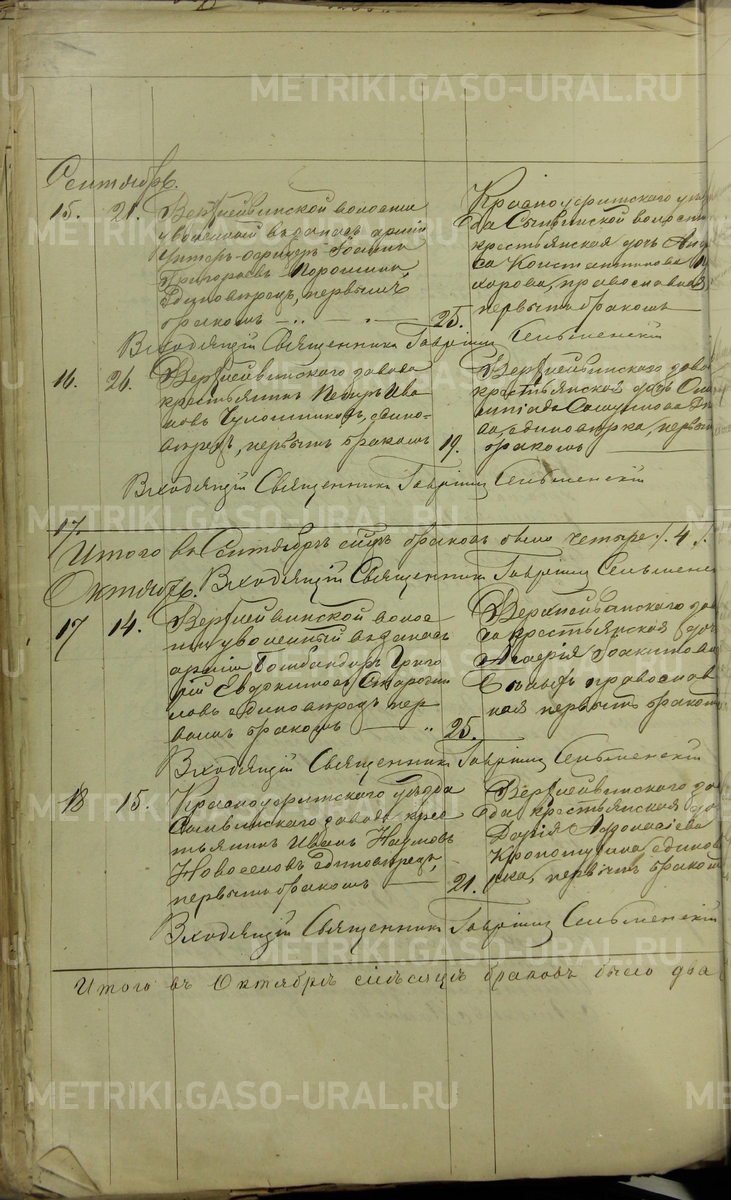 Сентябрь.
15. 21. Верхнейвинской волости
уволенный въ запасъ арміи
Унтеръ-офицеръ Іоаннъ
Григорьевъ Порошинъ,
Единоверецъ, первымъ
бракомъ
Красноуфимскаго уѣз
да Сылвинской волости
крестьянская дочь
Константинова
православная,
25. первымъ бракомъ
Входящій Священникъ Гавріилъ Сельменскій
16. 26. Верхнейвинскаго завода
крестьянинъ Петръ Ива
новъ Чулошниковъ, едино-
верецъ, первымъ бракомъ
Верхнейвинскаго завод
крестьянская дочь
единоверка, первым
19. бракомъ
Входящій Священникъ Гавріилъ Сельменскій
17.
Итого въ Сентябрѣ мцѣ браковъ было четыре /. 4 /.
Октябрь. Входящій Священникъ Гавріилъ Сельменс
17 14. Верхнейвинской волос
ти уволенный въ запасъ
арміи Бомбандиръ Григо
рій Евдокимовъ
единоверецъ пер
вымъ бракомъ
Верхнейвинскаго за
крестьянская доч
православ
ная первымъ браком
25.
Входящій Священникъ Гавріилъ Сельменскій
18 15. Красноуфимскаго уѣзда
Сылвинскаго завода крес
тьянинъ Иванъ Наумовъ
Новоселовъ единоверецъ,
первымъ бракомъ
Верхнейвинскаго за
вода крестьянская до
Дарія Афонасіева
единов
21. рка, первымъ браком
Входящій Священникъ Гавріилъ Сельменскій
Итого въ Октябрѣ мѣсяцѣ браковъ было два
METRIKI.GASO-URAL.RU